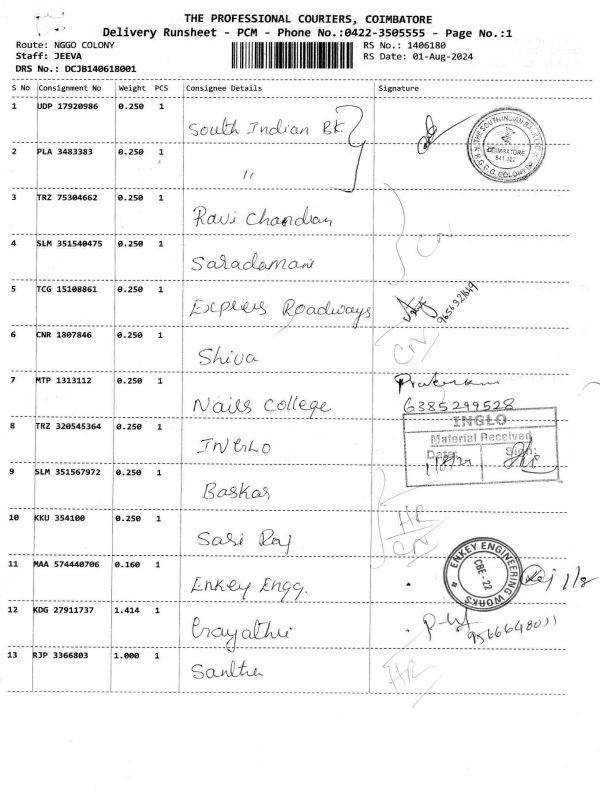 THE PROFESSIONAL COURIERS, COIMBATORE
Delivery Runsheet - PCM - Phone No.:0422-3505555 - Page No.:1
Route: NGGO COLONY
RS No.: 1406180
Staff: JEEVA
RS Date: 01-Aug-2024
DRS No.: DCJB140618001
S No Consignment No Weight PCS Consignee Details Signature
1 UDP 17920986 0.250 1 South Indian Bk.
THE SOUTH INDIAN BANK LTD
COIMBATORE
641 022
N.G.G.O. COLONY
2 PLA 3483383 0.250 1 "
3 TRZ 75304662 0.250 1 Ravi Chandran
CN
4 SLM 351540475 0.250 1 Saradamani
5 TCG 15108861 0.250 1 Express Roadways
6 CNR 1807846 0.250 1 Shiva CN
7 MTP 1313112 0.250 1 Nails College
6385299528
8 TRZ 320545364 0.250 1 INGLO
INGLO
Material Received
Date: 1/8/24 Sign:
9 SLM 351567972 0.250 1 Baskar
10 KKU 354100 0.250 1 Sasi Raj
HR
CN
11 MAA 574440706 0.160 1 Enkey Engg.
ENKEY ENGINEERING WORKS
CBE - 22
1/8
12 KDG 27911737 1.414 1
9566648011
13 RJP 3366803 1.000 1
HR